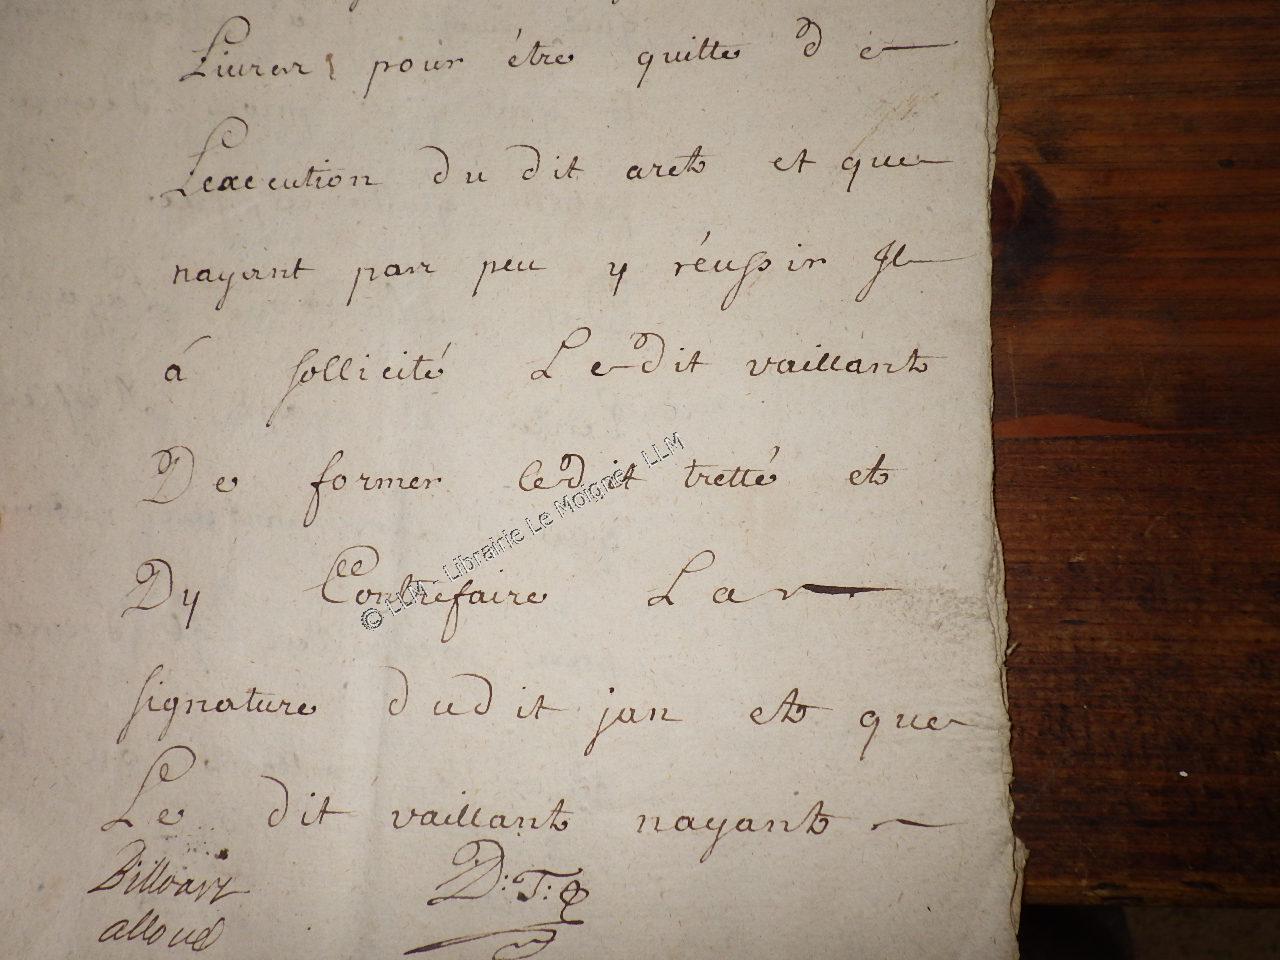 Livres pour étre quitte dé
Lexecution du dit aret et que
nayant par peu y réussir Il
á sollicité Le dit vaillant
De former ledit tretté et
Dy Contrefaire La
signature dudit jan et que
Le dit vaillant nayant
Billoart D: T:
alloué
© LLM - Librairie Le Moigne - LLM